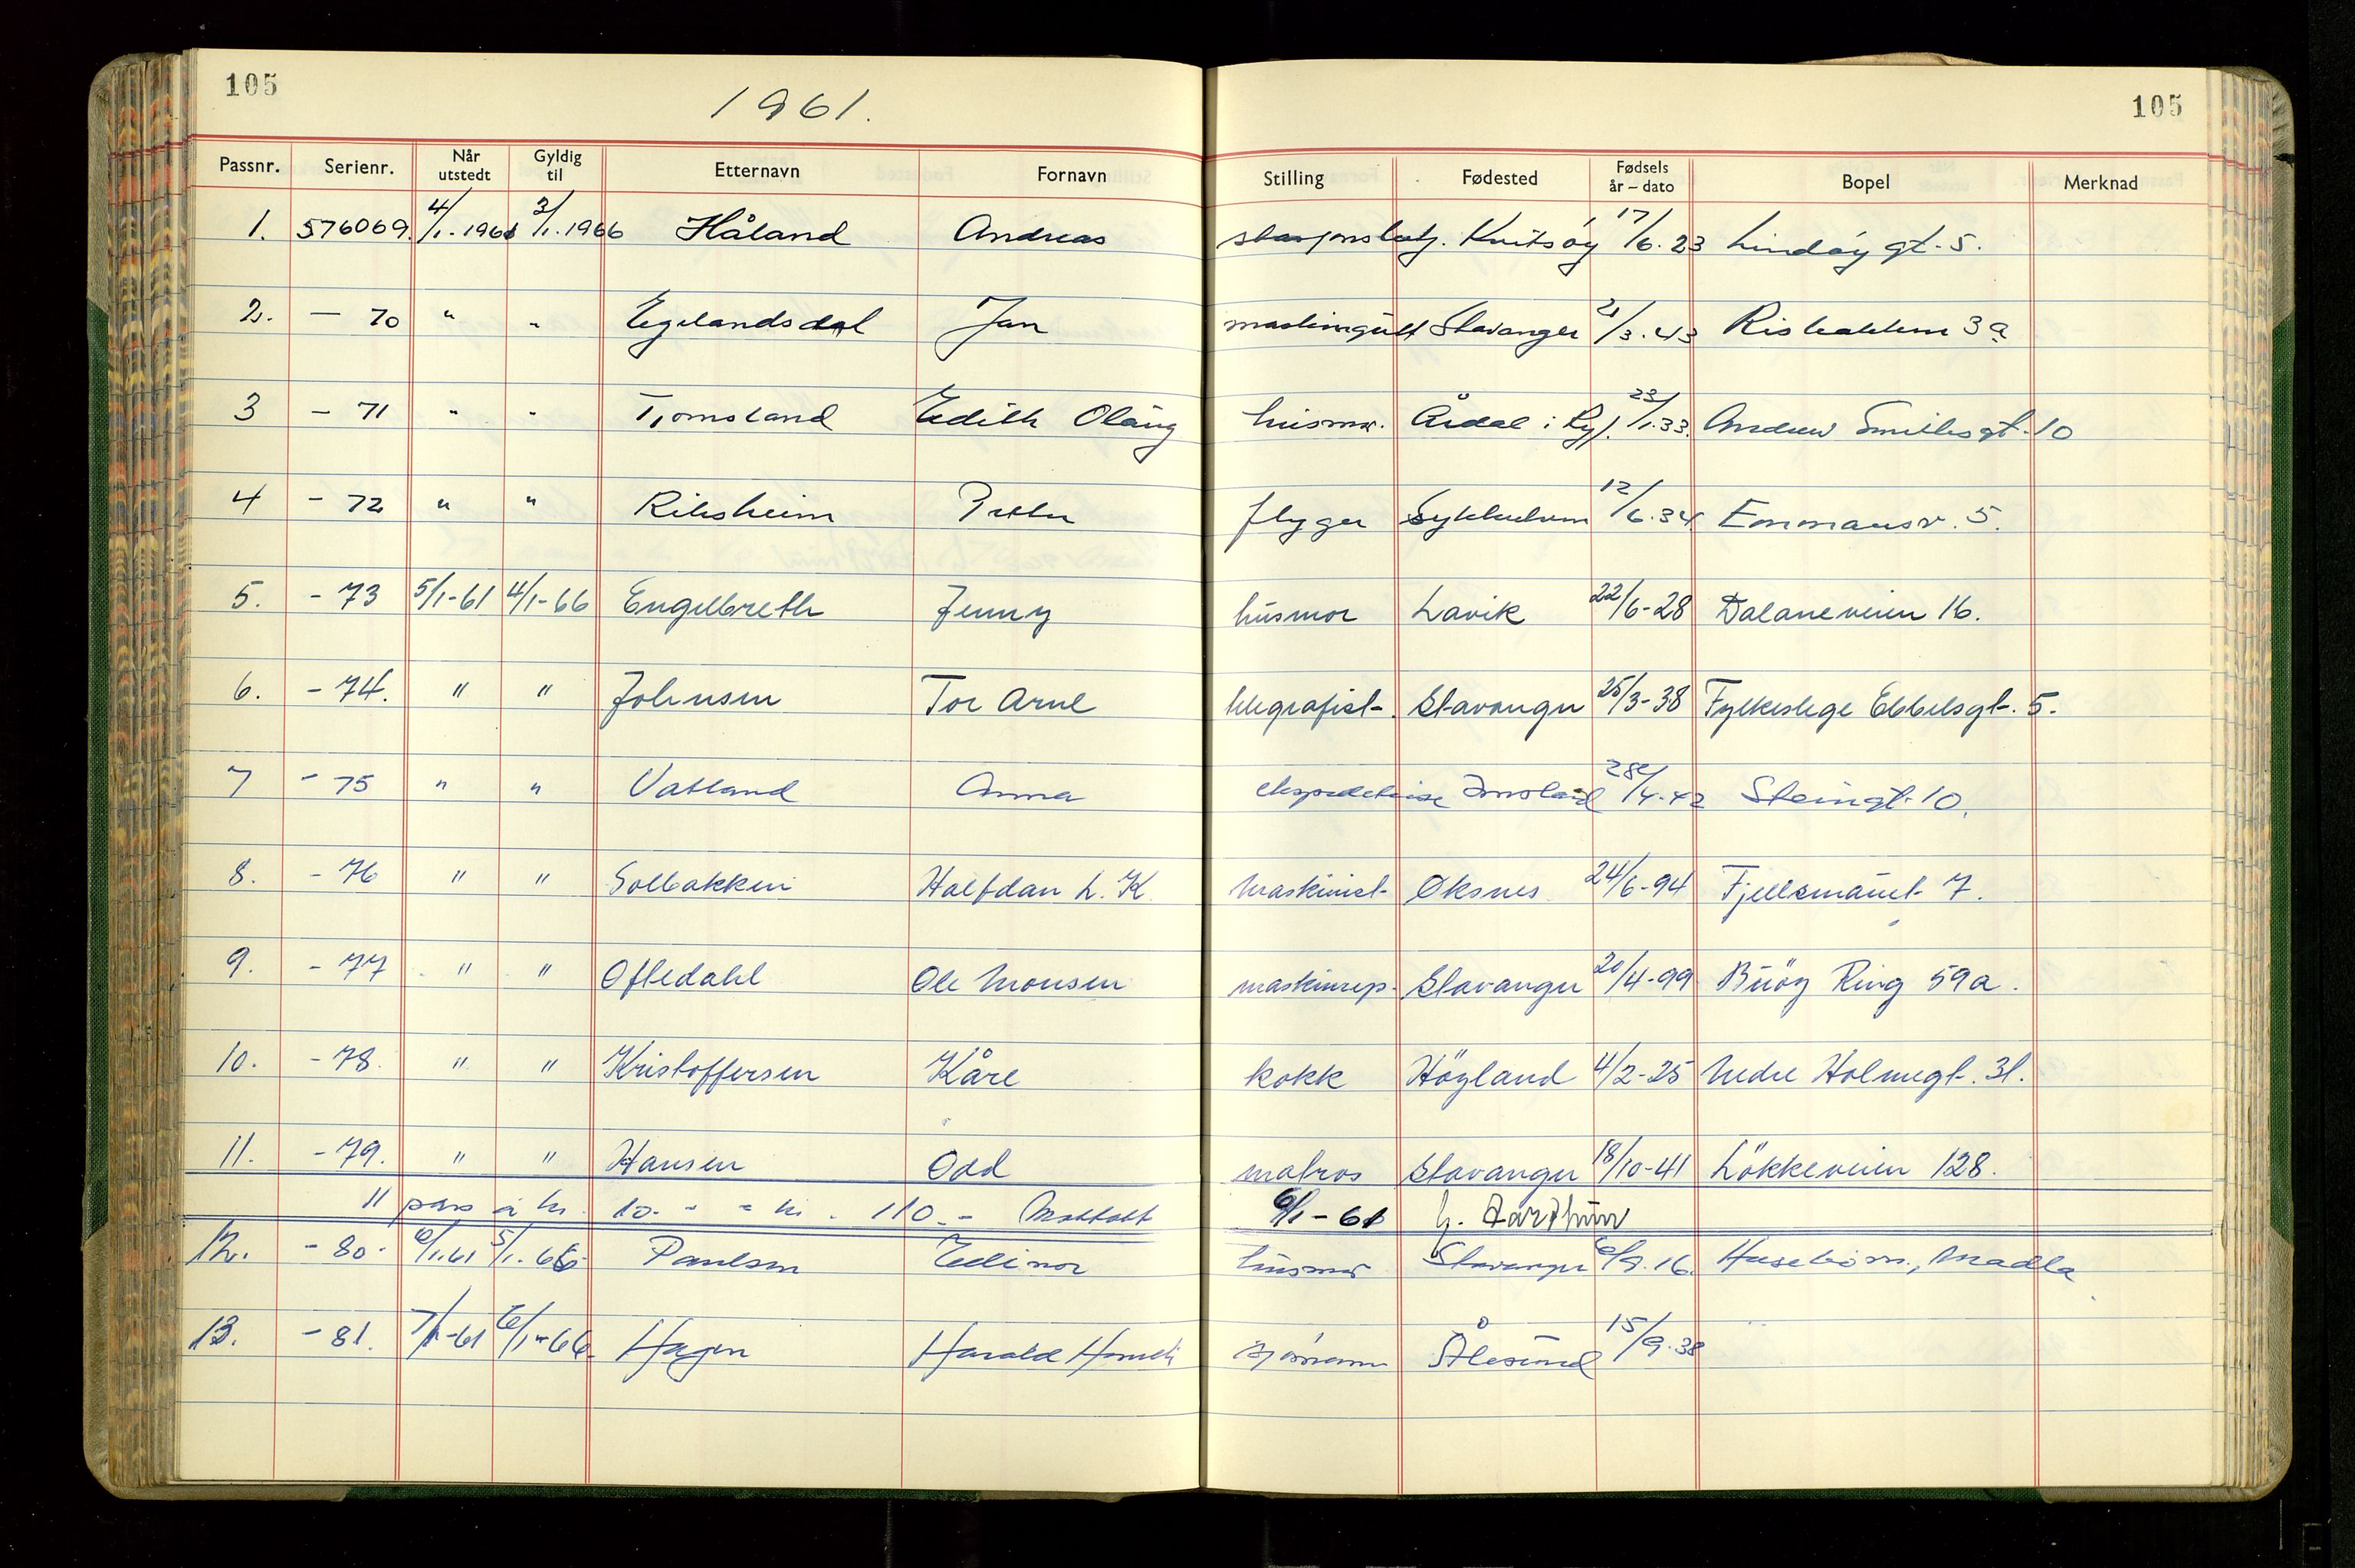 105
105
1961.
Passnr. Serienr. Når utstedt Gyldig til Etternavn Fornavn Stilling Fødested Fødsels år – dato Bopel Merknad
1. 576069. 4/1.-1961 3/1.1966 Håland Andreas stasjonsbetj. Kvitsøy 17/6.23 Lindøy gt. 5.
2. – 70 " " Egelandsdal Jan maskingutt Stavanger /3.43 Risbakken 3a
3 – 71 " " Tjomsland Edith Olaug husmor. Årdal i Ryf. 23/1.33. Andrew Smithsgt. 10
4 – 72 " " Petter flyger 12/6.34 Emmausv. 5.
5. – 73 5/1-61 4/1-66 Engelbreth Jenny husmor Lavik 22/6-28 Dalaneveien 16.
6. – 74. " " Johnsen Tor Arne telegrafist. Stavanger 25/3-38 Fylkeslege Ebbelsgt. 5.
7 – 75 " " Vatland Anna ekspeditrise Imsland 28/4.42 Steingt. 10.
8. – 76 " " Solbakken Halfdan L. K. maskinist Øksnes 24/6-94 Fjellsmauet 7.
9. – 77 " " Oftedahl Ole Monsen maskinrep. Stavanger 20/4-99 Buøy Ring 59a.
10. – 78. " " Kristoffersen Kåre kokk Höyland 4/2-25 Nedre Holmegt. 31.
11. – 79. " " Hansen Odd matros Stavanger 18/10-41 Lökkeveien 128.
11 pass à kr. 10.- = kr. 110.- Mottatt 6/1-61
12. – 80. 6/1.61 5/1.66 Paulsen Edinor husmor Stavanger 6/9.16. Madla
13. – 81. 7/1-61 6/1-66. Hagen Harald sjømann Ålesund 15/9.38